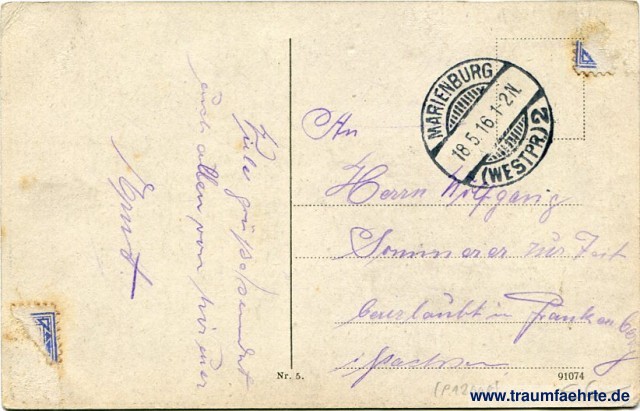 Viele Grüße sendet
euch allen von hier euer
Ernst.
MARIENBURG
18.5.16.1-2N.
(WESTPR.) 2
An
Herrn Wolfgang
Sommerer zur Zeit
beurlaubt in Frankenberg
i/Sachsen
Nr. 5.
91074
www.traumfaehrte.de